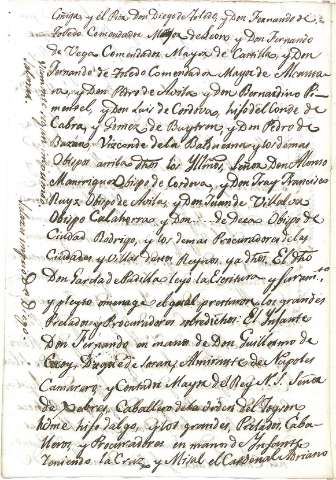 y el Prior Don Diego de Toledo, y Don Fernando de
Toledo Comendador Mayor de Leon, y Don Fernando
de Vega Comendador Mayor de Castilla, y Don
Fernando de Toledo Comendador Mayor de Alcanta
ra, y Don Pedro de Avila, y Don Bernardino Pi
mentel, y Don Luis de Cordova, hijo del Conde de
Cabra, y Gomez de Buytron, y Don Pedro de
Bazan, Vizconde de la Balduerna, y los demas
Obispos arriba dhos los Yllmos Señor Don Alonso
Manrrique Obispo de Cordova, y Don Fray Francisco
Ruyz Obispo de Avila, y Don Juan de Villalva
Obispo Calahorra, y Don de Deza Obispo de
Ciudad Rodrigo, y los demas Procuradores de las
Ciudades, y Villas destos Reynos, ya dhos. El dho
Don Garcia de Padilla leyó la Escritura y
y pleyto omenage el qual prestaron, los grandes
Prelados, y Procuradores sobredichos: El Infante
Don Fernando en manos de Don Guillermo de
Croy, Duque de Soran, Almirante de Napoles
Camarero, y Contador Mayor del Rey N. S. Señor
de Xebres, Caballero de la Orden del Toyson
home hijo dalgo, y los grandes, Prelados, Caba
lleros, y Procuradores en manos de Infante
Teniendo la Cruz, y Misal el Cardenal Adriano